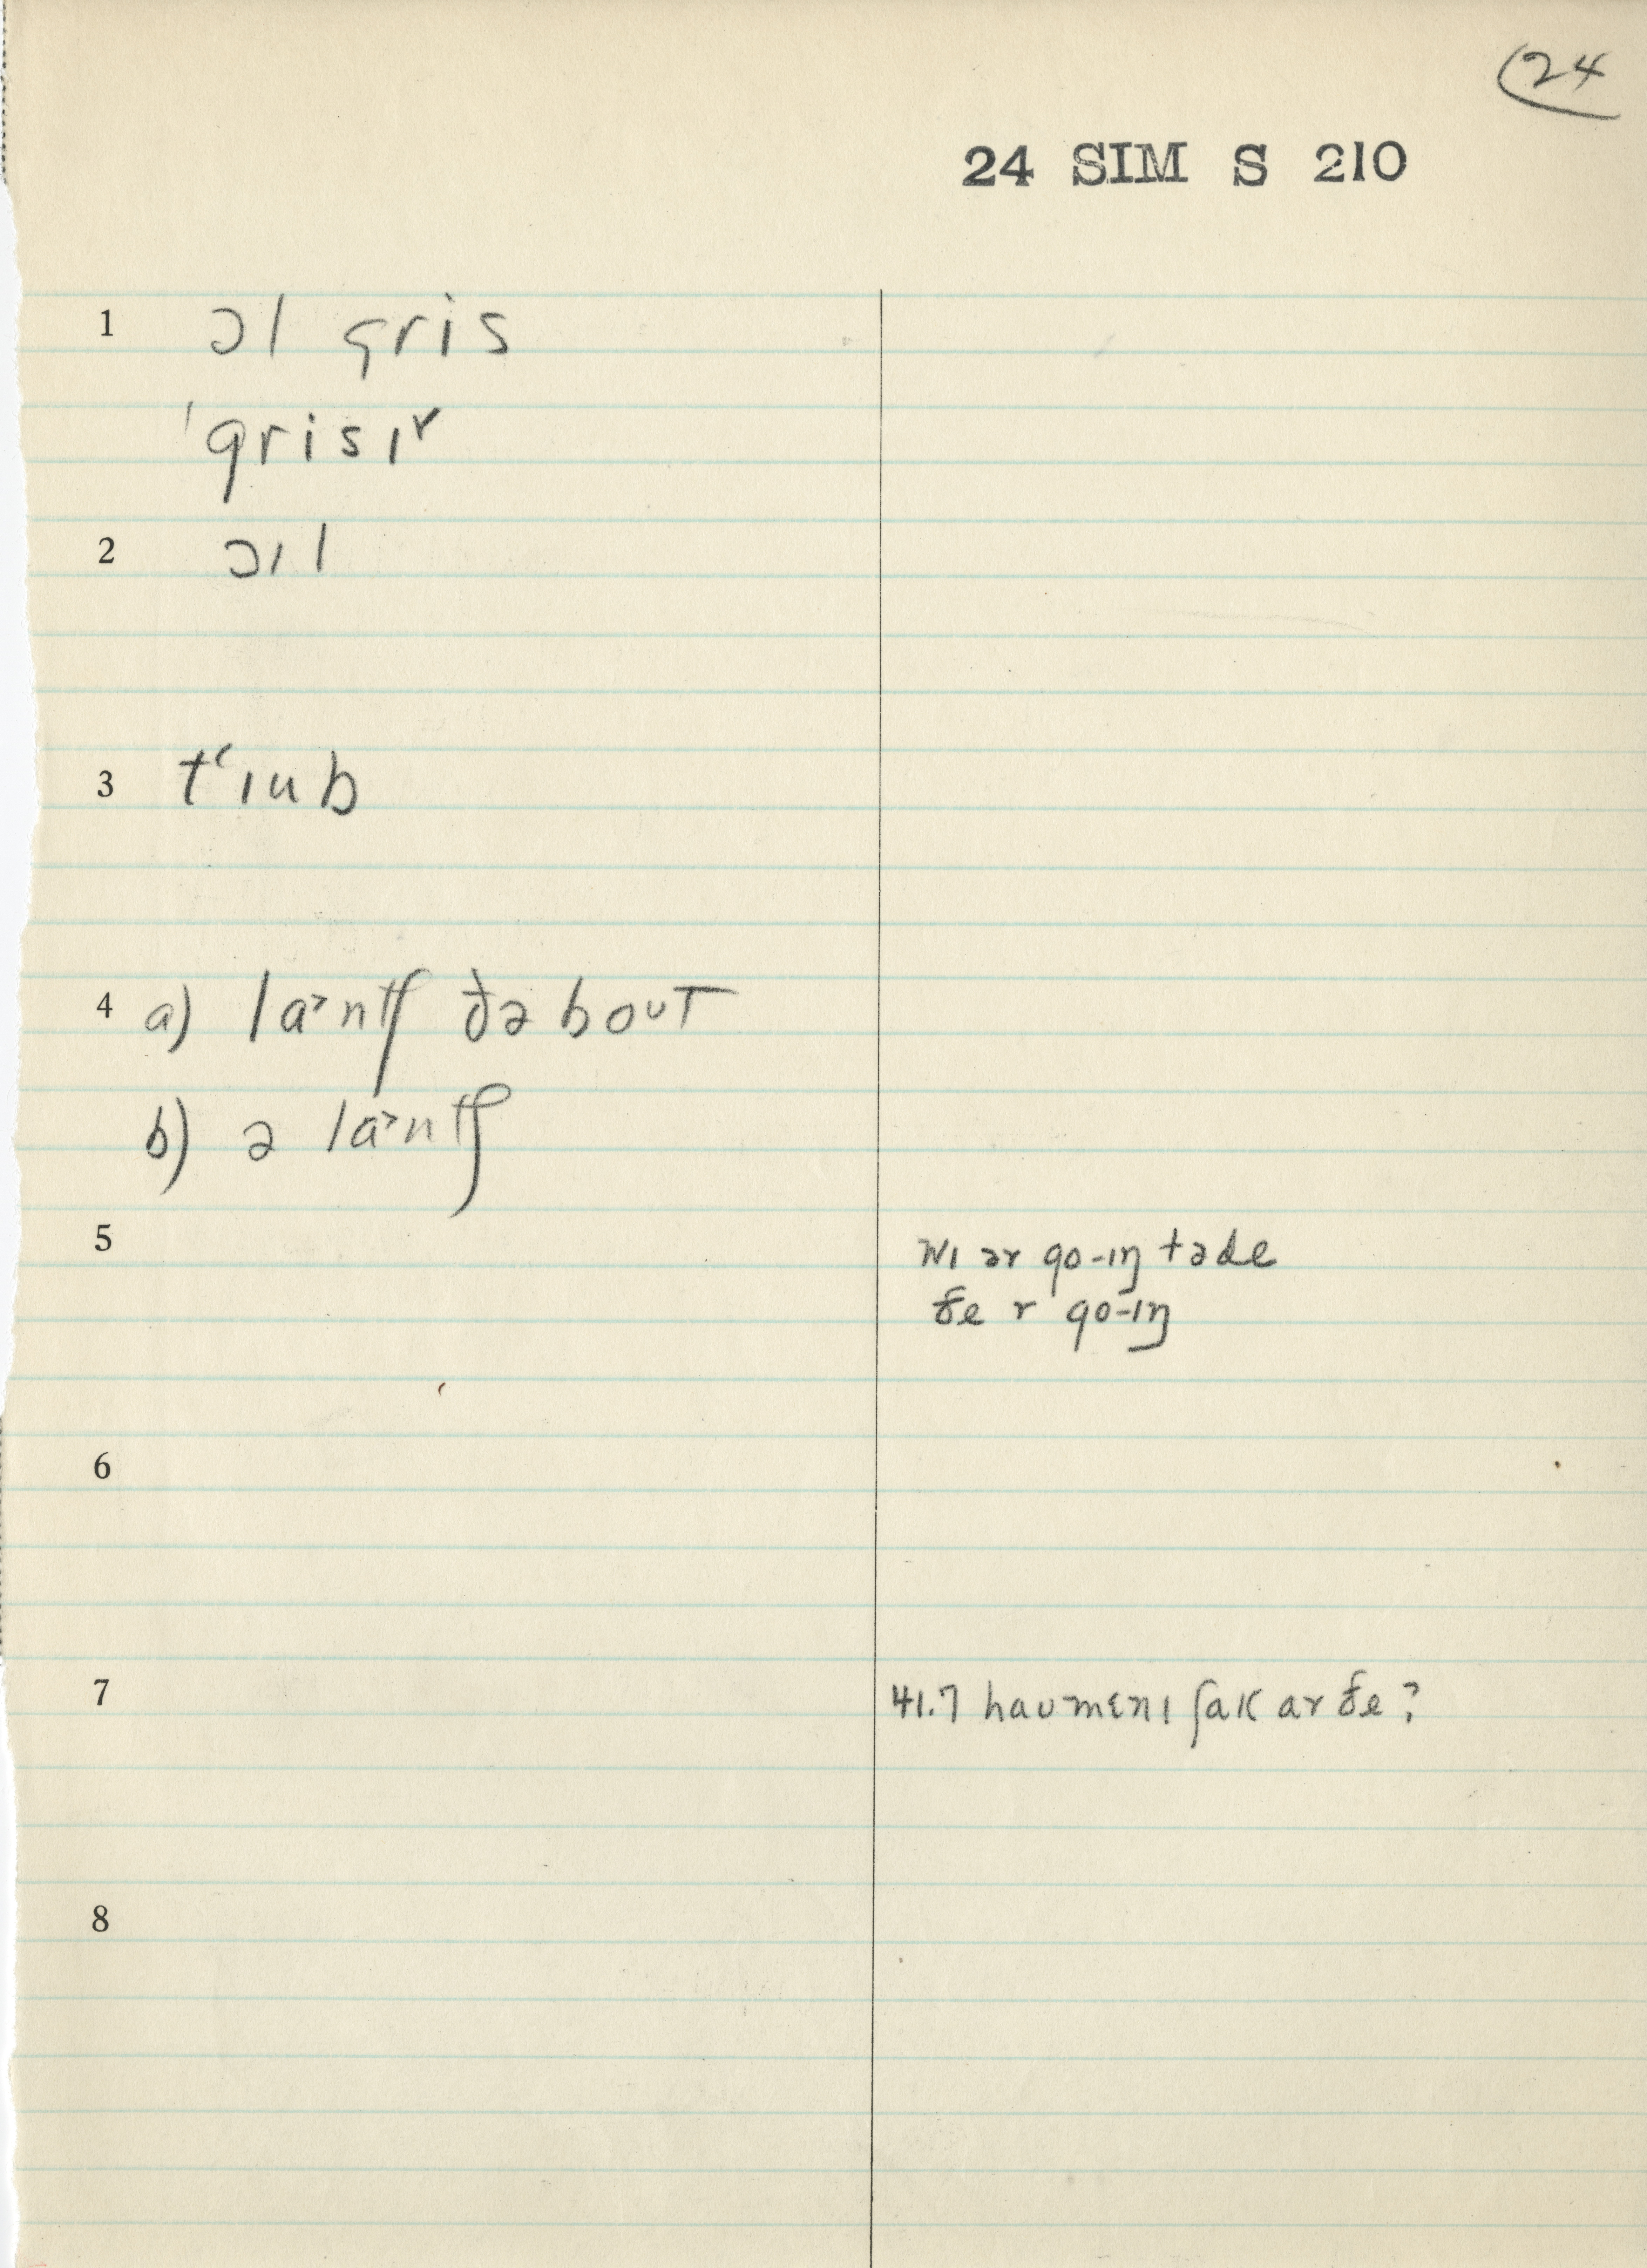 24
24 SIM S 210
1 ɔl gris
ˈgrisɪʳ
2 ɔɪl
3 tʻɪub
4 a) la˃ntʃ ðə boᴜT
b) ə la˃ntʃ
5 wɪ ər go-ɪŋ təde
ðe r go-ɪŋ
6
7 41.7 haᴜmɛnɪ ʃak ar ðe?
8